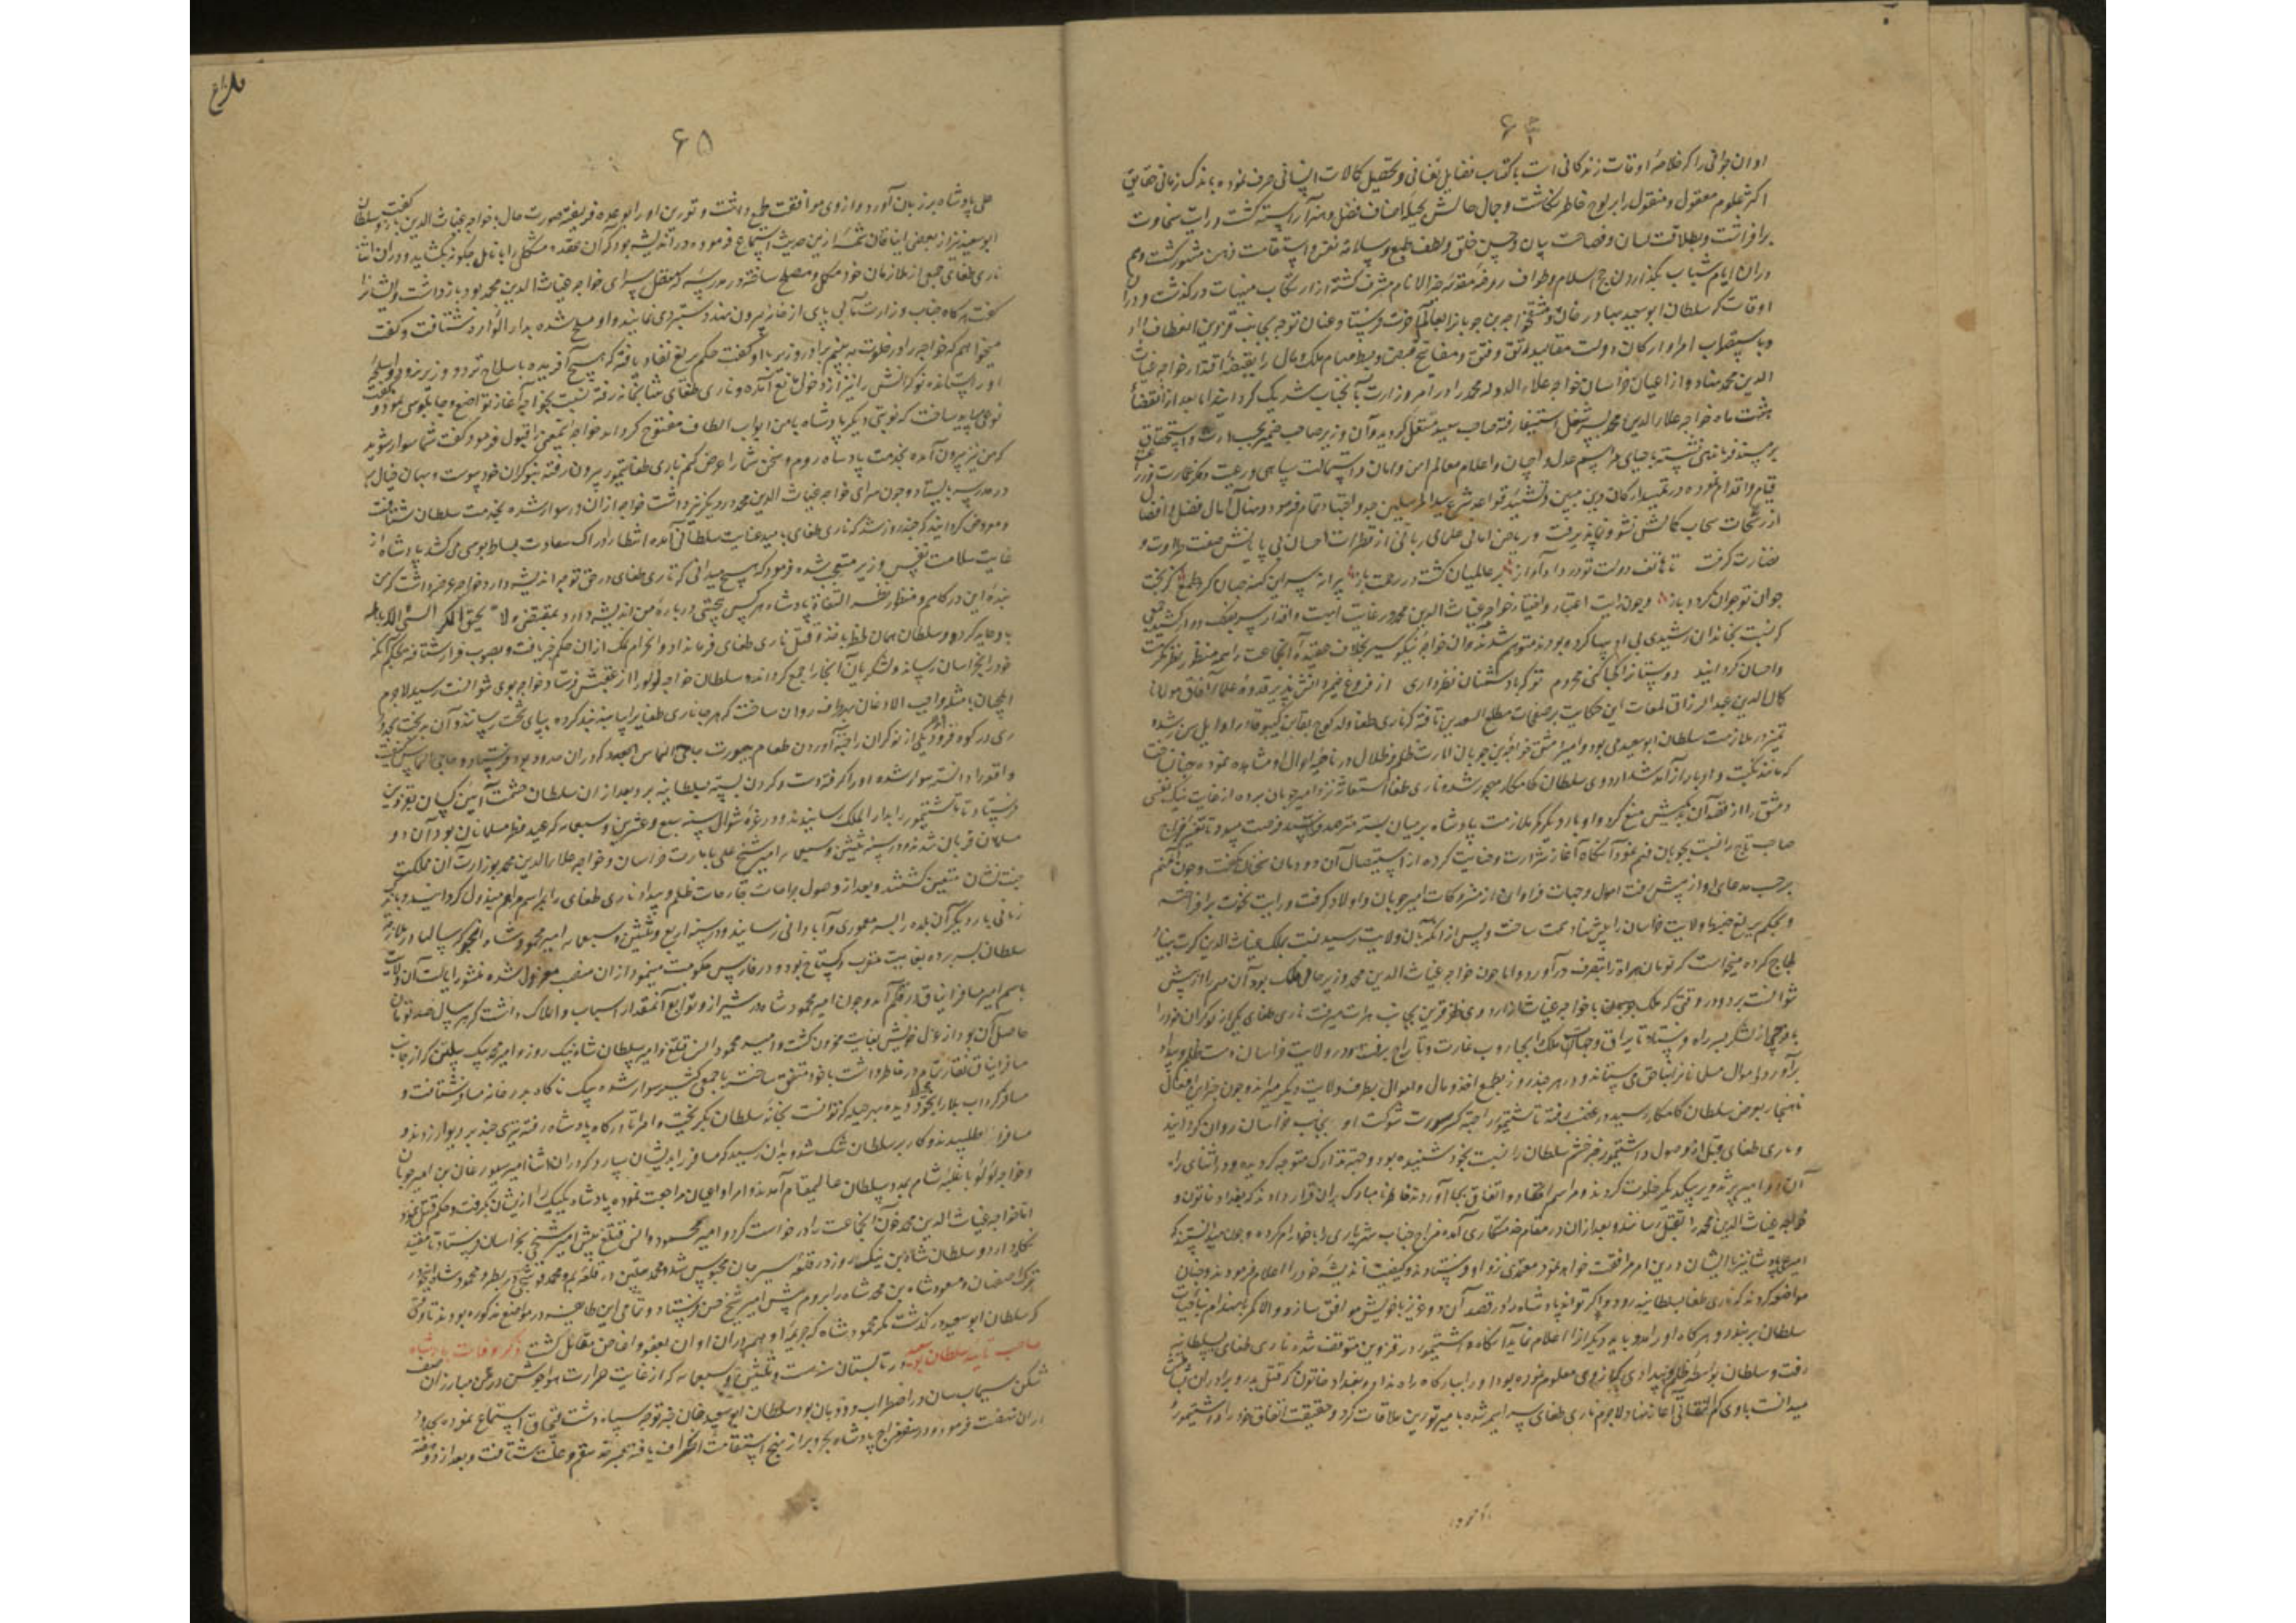 ۶۴
اوان جوانی را که خلاصهٔ اوقات زندگانی است باکتساب فضایل نفسانی و تحصیل کمالات انسانی صرف نموده باندک زمانی حقایق
اکثر علوم معقول و منقول را بر لوح خاطر نگاشت و جمال حالش بحلیهٔ اصناف فضل و هنر آراسته گشت و رایت سخاوت
برافراشت و بطلاقت لسان و فصاحت بیان و حسن خلق و لطف طبع و سلامت نفس و استقامت ذهن مشهور گشت و هم
در ان ایام شباب بگذاردن حج اسلام و طواف روضهٔ مقدسهٔ خیر الانام مشرف گشته از ارتکاب منهیات درگذشت و در آن
اوقات که سلطان ابو سعید بهادر خان دمشق خواجه بن جوبان را بعالم آخرت فرستاد و عنان توجه بجانب قزوین انعطاف داد
و باستصواب امرا و ارکان دولت مقالید رتق و فتق و مفاتیح قبض و بسط مهام ملک و مال را بقبضهٔ اقتدار خواجه غیاث
الدین محمد نهاد و از اعیان خراسان خواجه علاء الدوله محمد را در امر وزارت با آنجناب شریک گردانید اما بعد از انقضاء
هشت ماه خواجه علاء الدین محمد بشغل استیفا رفته صاحب سعید مستقل گردید و آن وزیر صاحب ضمیر بحسب ارث و استحقاق
بر مسند فرماندهی نشسته باحیای مراسم عدل و احسان و اعلام معالم امن و امان و استمالت سپاهی و رعیت و
قیام و اقدام نموده در تمهید ارکان دین مبین و تشیید قواعد شرع سید المرسلین جد و اجتهاد تمام فرمود و نهال آمال فضل و افضال
از رشحات سحاب کمالش نشو و نما پذیرفت و ریاض امانی علمای ربانی از قطرات احسان بی پایانش صفت طراوت و
نضارت گرفت تا هاتف دولت تو در داد آواز بر عالمیان گشت در رحمت باز پیرانه سر این کهنه جهان کرد طمع کز بخت
جوان تو جوان گردد باز و چون رایت اعتبار و اختیار خواجه غیاث الدین محمد در غایت ابهت و اقتدار سر بفلک دوار کشید جمعی
که نسبت بخاندان رشیدی بی ادبیها کرده بودند متوهم شدند و آن خواجهٔ نیکو سیر بخلاف عقیدهٔ آنجماعت را همه منظور نظر مکرمت
و احسان گردانید دوستان را کجا کنی محروم تو که با دشمنان نظر داری از فروغ ضمیر دانش پذیر قدوهٔ علماء آفاق مولانا
کمال الدین عبد الرزاق لمعات این حکایت بر صفحات مطلع السعدین تافته که ناری طغا ولد در اوایل سن رشد
تمیز در ملازمت سلطان ابو سعید می بود و امیر دمشق خواجه بن جوبان امارت ظلم و ضلال در ناصیهٔ احوال او مشاهده نموده چنان ساخت
که مانند نکبت و ادبار از آمد شد اردوی سلطان کامکار مهجور شد و ناری طغا استغاثه نزد امیر جوبان برده از غایت نیک نفسی
دمشق را از قصد آن بدکیش منع کرد و او بار دیگر کمر ملازمت پادشاه بر میان بسته مترصد و منتهز فرصت میبود تا تغیر مزاج
صاحب تاج را نسبت بجوبان فهم نمود آنگاه آغاز شرارت و خباثت کرده از استیصال آن دودمان سخنان گفت و چون مهم
بر حسب مدعای او از پیش رفت اموال و جهات فراوان از متروکات امیر جوبان و اولاد گرفت و رایت نخوت برافراخته
و بحکم یرلیغ ضبط ولایت خراسان را پیش نهاد همت ساخت و پس از آنکه بآن ولایت رسید نسبت بملک غیاث الدین کرت بنیاد
لجاج کرده میخواست که تومان هراة را بتصرف درآورد و اما چون خواجه غیاث الدین محمد وزیر حامی ملک بود آن مهم را از پیش
نتوانست برد و در وقتی که ملک با خواجه غیاث از اردوی ظفر قرین بجانب هرات میرفت ناری طغای یکی از نوکران خود را
با فوجی از لشکر بسر راه فرستاد تا یراق و جهات ملک را بجاروب غارت و تاراج برفتند و در ولایت خراسان دست ظلم و بیداد
برآورد و اموال مسلمانان بناحق می ستاند و در هر چند روز بطمع اخذ و مال و اموال بطرف ولایت دیگر میراند و چون خبر این افعال
ناهنجار بعرض سلطان کامکار رسید در غضب رفته تاشتیمور را جهة کسر سورت شوکت او بجانب خراسان روان گردانید
و ناری طغای قبل از وصول تاشتیمور خبر خشم سلطان را نسبت بخود شنیده بود و جهة تدارک متوجه گردیده و در اثنای راه
آن دو امیر پر شر و شور بیکدیگر خلوت کردند و مراسم اعتقاد و اتفاق بجا آوردند خاطر نامبارک بران قرار دادند که بغداد خاتون و
خواجه غیاث الدین محمد را بقتل رسانند و بعد ازان در مقام خدمتکاری آمده مزاج جناب شهریاری را با خود رام کرده و چون میدانستند که
امیر علی پادشاه نیز با ایشان درین امر موافقت خواهد نمود معتمدی نزد او فرستادند و کیفیت اندیشهٔ خود را اعلام فرمودند و چنان
مواضعه کردند که ناری طغا بسلطانیه رود و اگر تواند پادشاه را در قصد آن دو عزیز با خویش موافق سازد و الا کمر بانهدام بنای حیات
سلطان بر بندد و هرگاه او را مدد باید دیگران را اعلام نماید آنگاه تاشتیمور در قزوین متوقف شد و ناری طغای بسلطانیه
رفت و سلطان بواسطهٔ ظلم و بیدادی که از وی معلوم نموده بود او را ببارگاه راه نداد و بغداد خاتون که قتل پدر و برادران
میدانست با وی کم التفاتی آغاز نهاد لاجرم ناری طغای سراسیمه شده با میر تورین ملاقات کرد و حقیقت اتفاق خود را و تاشتیمور
۶۵
علی پادشاه بر زبان آورد و از وی موافقت طمع داشت و تورین او را بوعده فریفته صورت حال بخواجه غیاث الدین بازگفت و سلطان
ابو سعید نیز از بعضی ایناقان شمهٔ ازین حدیث استماع فرموده در اندیشه بود که آن عقدهٔ مشکل را بانامل چگونه بگشاید و در ان اثنا
ناری طغای جمعی از ملازمان خود مکمل و مسلح ساخته در مدرسه که مقابل سرای خواجه غیاث الدین محمد بود بازداشت و ایشان را
گفت هرگاه جناب وزارت مآبی پای از خانه بیرون نهند دستبردی نمایند و او مسلح شده بدار الوزاره شتافت و گفت
میخواهم که خواجه را در خلوت به بینم برادر وزیر با او گفت حکم یرلیغ نفاذ یافته که هیچ آفریده با سلاح نزد وزیر نرود و اسلحهٔ
او را ستانده نوکرانش را نیز از دخول مانع آمدند و ناری طغای بخانه رفته نسبت بخواجه آغاز تواضع و چاپلوسی نمود و گفت
نوعی میباید ساخت که نوبتی دیگر پادشاه بامن ابواب الطاف مفتوح گرداند خواجه ایمعنی را قبول فرمود و گفت شما سوار شوید
که من نیز بیرون آمده بخدمت پادشاه روم و سخن شما را عرض کنم ناری طغا بیرون رفته بنوکران خود پیوست و بهمان خیال بر
در مدرسه بایستاد و چون سرای خواجه غیاث الدین محمد در دیگر نیز داشت خواجه ازان در سوار شده بخدمت سلطان شتافت
و معروض گردانید که چند روز شد که ناری طغای بامید عنایت سلطانی آمده انتظار ادراک سعادت بساط بوسی می کشد پادشاه از
غایت سلامت نفس وزیر متعجب شده فرمود که هیچ میدانی که ناری طغای در حق تو چه اندیشه دارد خواجه عرضه داشت که من
بندهٔ این درگاهم و منظور نظر التفات پادشاه هر کس بجهتی دربارهٔ من اندیشهٔ دارد بمقتضی و لا یحیق المکر السیئ الا باهله
باو عاید گردد و سلطان همان لحظه باخذ و قتل ناری طغای فرمان داد و آن حرام نمک ازان حکم خبر یافت و بصوب فرار شتافت بخیال آنکه
خود را بخراسان رساند و لشکریان آنجا را جمع گرداند و سلطان خواجه لؤلؤ را از عقبش فرستاد خواجه بوی نتوانست رسید لاجرم
ایلچیان با مثله واجب الاذعان باطراف روان ساخت که هر جا ناری طغا را بیابند بند کرده بپای تخت رسانند و آن بدبخت بحدود
ری در کوه فرود آمد و یکی از نوکران را جهة آوردن طعام بصورت حاجی الماس که دران حدود بود فرستاد و حاجی الماس کیفیت
واقعه را دانسته سوار شد و او را گرفته دست و گردن بسته بسلطانیه برد و بعد از ان سلطان حشمت آیین کسان بقزوین
فرستاد تا تاشتیمور را بدار الملک رسانیدند و در غرهٔ شوال سنه سبع و عشرین و سبعمایه که عید فطر مسلمانان بود آن دو
مسلمان قربان شدند و در سنه ثلثین و سبعمایه امیر شیخ علی بامارت خراسان و خواجه علاء الدین محمد بوزارت آن مملکت
جنت نشان متعین گشتند و بعد از وصول بدانجا جراحات ظلم و بیداد ناری طغای را بمراسم مراهم مبذول گردانیدند و باندک
زمانی بار دیگر آن بلده را بسرحد معموری و آبادانی رسانیدند و در سنه اربع و ثلثین و سبعمایه امیر محمود شاه اینجو که سالها در ملازمت
سلطان بسر برده بغایت مقرب و گستاخ بود و در فارس حکومت مینمود ازان منصب معزول شده منشور ایالت آن ولایت
باسم امیر مسافر ایناق در قلم آمد و چون امیر محمود شاه در شیراز و توابع آنمقدار اسباب و املاک داشت که هر سال صد تومان
حاصل آن بود از عزل خویش بغایت محزون گشت و امیر محمود ایسن قتلغ و امیر سلطان شاه نیک روز و امیر محمد بیک پیلتن که از جانب
مسافر ایناق نقار تمام در خاطر داشت باخود متفق ساخته با جمعی کثیر سوار شده بیک ناگاه بدر خانه مسافر شتافت و
مسافر گرداب بلا را بخود محیط دیده بهر حیله که توانست بخانهٔ سلطان بگریخت و امرا تا درگاه پادشاه رفته تیری چند بر دیوار زدند و
مسافر را طلبیدند و کار بر سلطان تنگ شد و بدان رسید که مسافر را بدیشان سپارد که در ان اثنا امیر سیورغان بن امیر جوبان
و خواجه لؤلؤ با غلبهٔ تمام بمدد سلطان عالیمقام آمدند و امرا و اعیان مراجعت نموده پادشاه یک یک را ازیشان بگرفت و حکم قتل نمود
اما خواجه غیاث الدین محمد خون آنجماعت را درخواست کرد و امیر محمود ایسن قتلغ پیش امیر شیخ علی بخراسان فرستاد تا مقید
نگاه دارد و سلطان شاه بن نیک روز در قلعه سیرجان محبوس شد و محمد پیلتن در قلعه بم و محمد قوشچی در و محمود شاه اینجو در
ترک اصفهان و مسعود شاه بن محمد شاه را بروم پیش امیر شیخ حسن فرستاد و تمامی این طایفه در مواضع مذکوره بودند تا وقتی
که سلطان ابو سعید درگذشت مگر محمود شاه که جریمهٔ او هم دران اوان بعفو و اغماض مقابل گشت ذکر وفات پادشاه
صاحب تایید سلطان ابو سعید در تابستان سنه ست و ثلثین و سبعمایه که از غایت حرارت هوا جوشن در بر مبارزان صف
شکن سیماب سان در اضطراب و ذوبان بود سلطان ابو سعید خان خبر توجه سپاه دشت قبچاق استماع نموده بحدود
اران نهضت فرمود و در سفر مزاج پادشاه بحر و بر از نهج استقامت انحراف یافته بمرحلهٔ سقم و علت شتافت و بعد از دو هفته